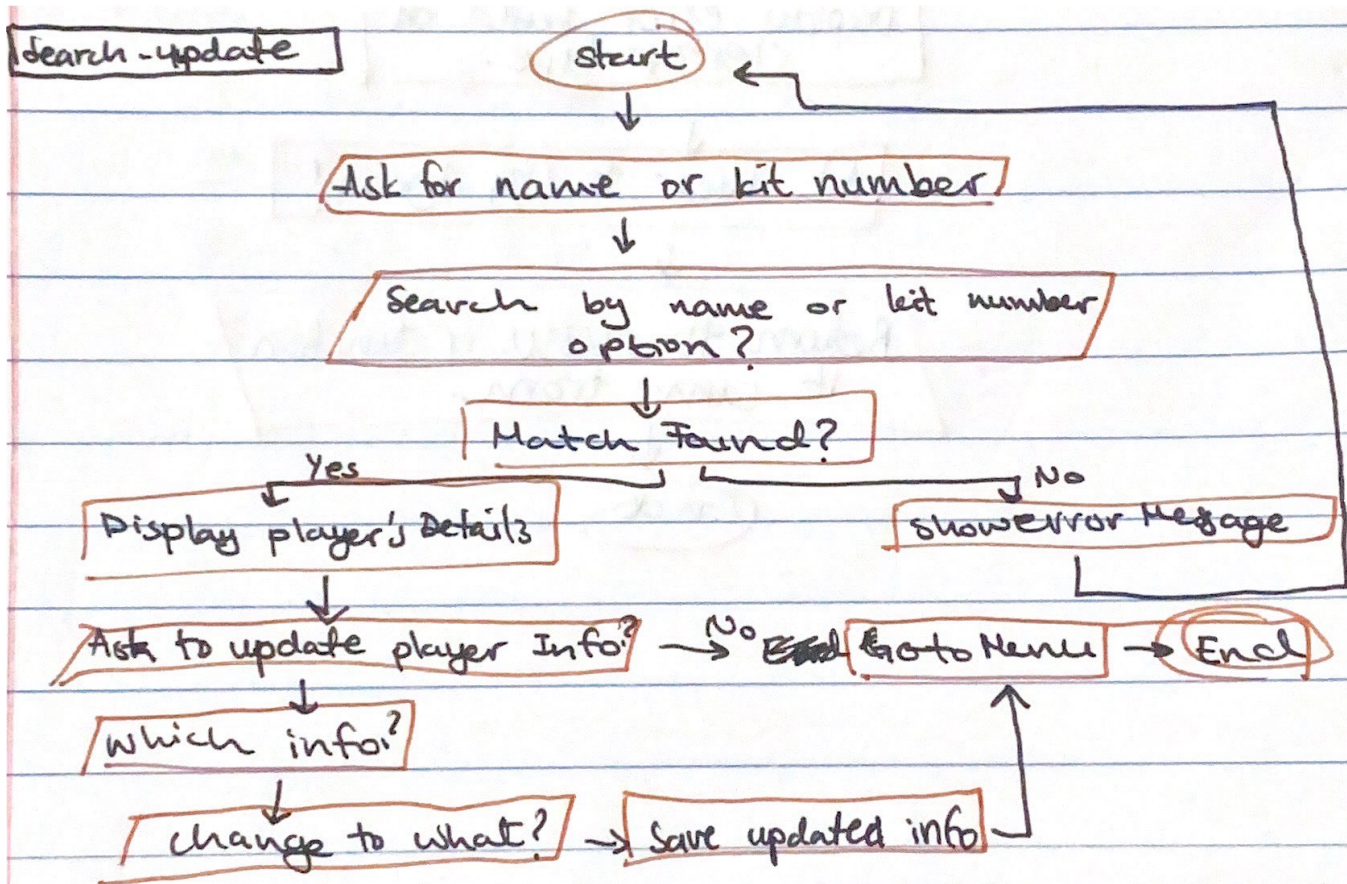 Search-update
start
Ask for name or kit number
Search by name or kit number
option?
Match Found?
Yes
No
Display player's Details
show error Message
Ask to update player Info?
No
Go to Menu
End
which info?
change to what?
Save updated info